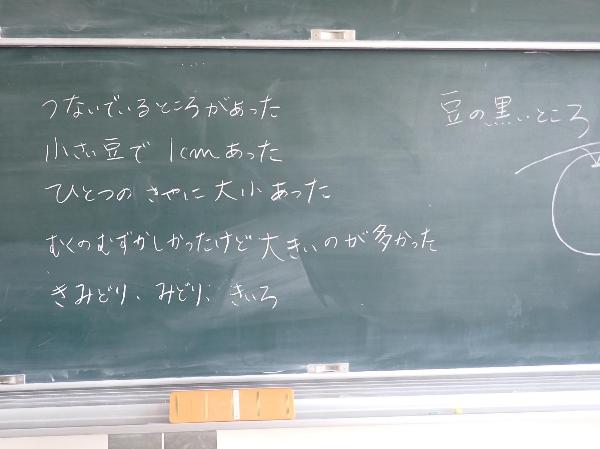 つないでいるところがあった
小さい豆で1cmあった
ひとつのさやに大小あった
むくのむずかしかったけど大きいのが多かった
きみどり、みどり、きいろ
豆の黒いところ